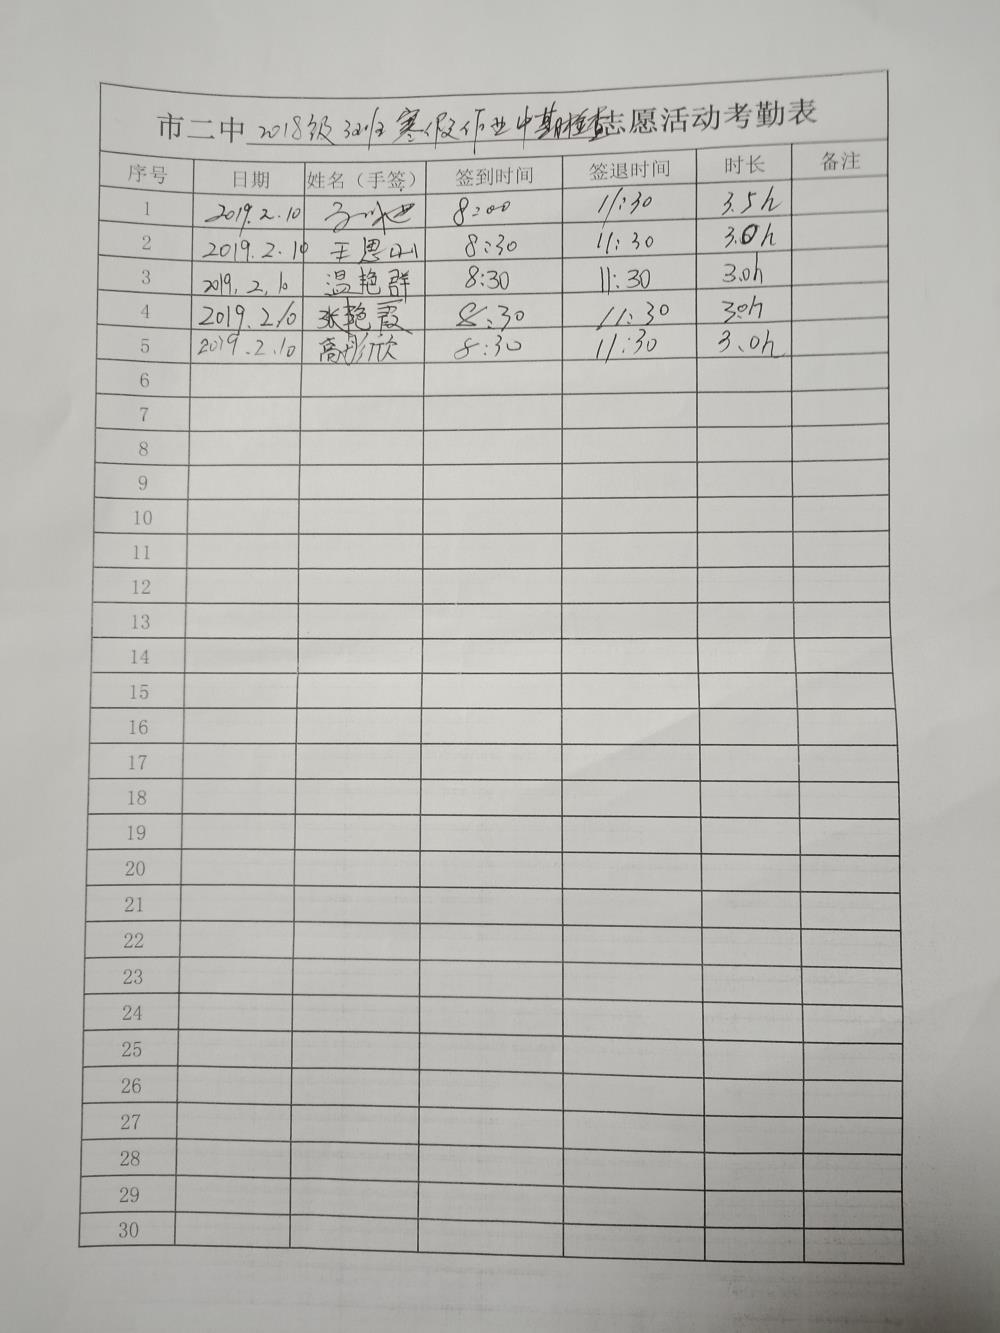 市二中 2018级 3班 寒假作业中期检查志愿活动考勤表
序号 日期 姓名（手签） 签到时间 签退时间 时长 备注
1 2019.2.10 8:00 11:30 3.5h
2 2019.2.10 王思 8:30 11:30 3.0h
3 2019.2.10 温艳群 8:30 11:30 3.0h
4 2019.2.10 张艳霞 8:30 11:30 3.0h
5 2019.2.10 高彤欣 8:30 11:30 3.0h
6
7
8
9
10
11
12
13
14
15
16
17
18
19
20
21
22
23
24
25
26
27
28
29
30